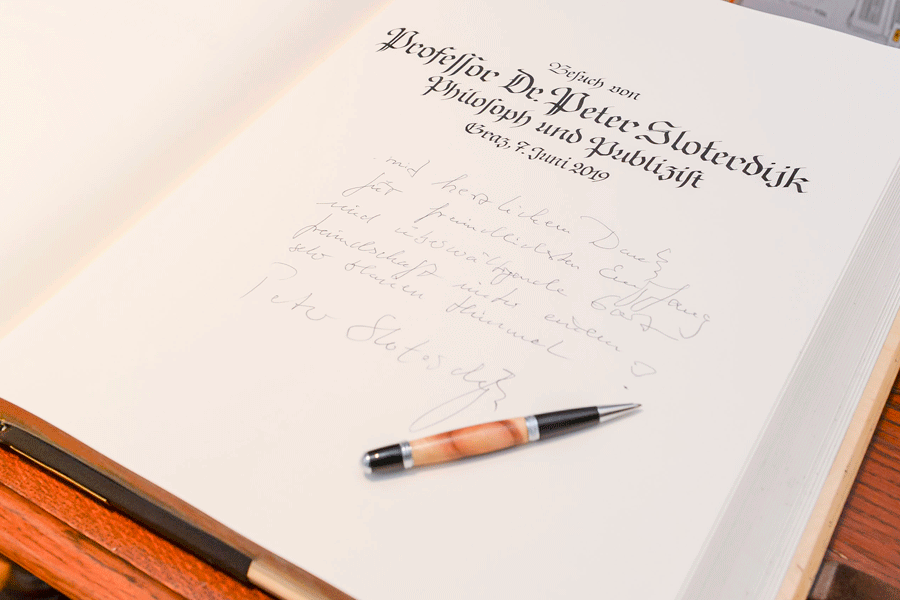 Besuch von
Professor Dr. Peter Sloterdijk
Philosoph und Publizist
Graz, 7. Juni 2019
mit herzlichem Dank
für freundlichsten Empfang
und überwältigende Gast-
freundschaft unter einem
so blauen Himmel
Peter Sloterdijk